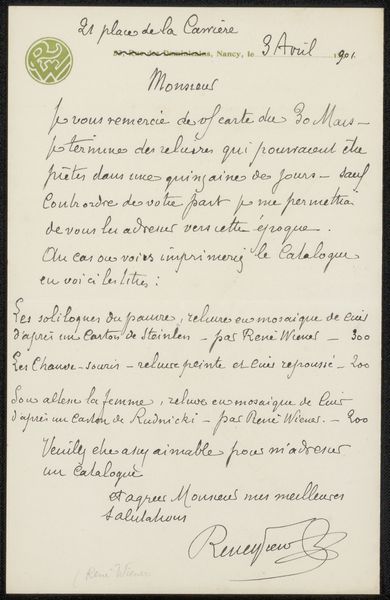 21 place de la Carrière
53, Rue des Dominicains, Nancy, le 3 Avril 1901.
Monsieur
Je vous remercie de v/ carte du 30 Mars -
Je termine des reliures qui pourraient être
prêtes dans une quinzaine de jours - sauf
contrordre de votre part je me permettrai
de vous les adresser vers cette époque.
Au cas ou vous imprimeriez le Catalogue
en voici les titres :
Les soliloques du pauvre, reliure en mosaique de cuir
d'après un carton de Steinlen - par René Wiener - 300
Les Chauve-souris - reliure peinte et cuir repoussé - 200
Son altesse la femme, reliure en mosaique de cuir
d'après un carton de Rudnicki - par René Wiener. - 200
Veuillez être assez aimable pour m'adresser
un catalogue
et agréer Monsieur mes meilleures
salutations
René Wiener
(René Wiener